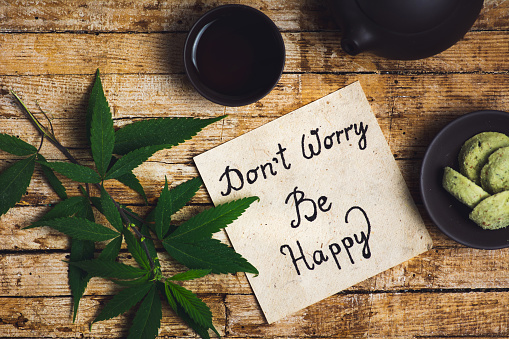 Don't Worry
Be
Happy